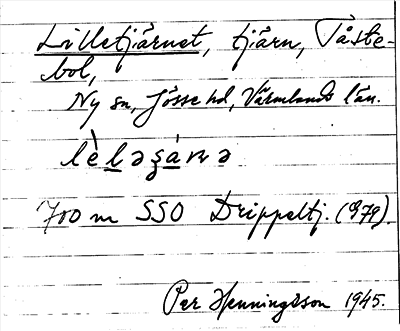 Lilletjärnet, tjärn, Tåste-
bol,
Ny sn, Jösse hd, Värmlands län.
lèləʂánə
700 m SSO Drippeltj. (979).
Per Henningsson 1945.